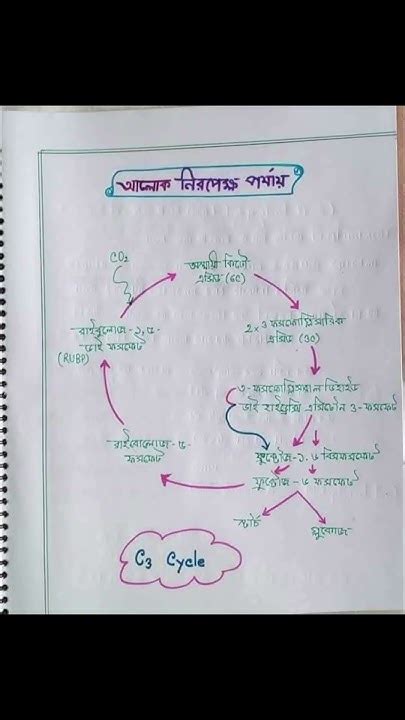 আলোক নিরপেক্ষ পর্যায়
CO₂
অস্থায়ী কিটো
এসিড (6C)
2×3 ফসফোগ্লিসারিক
এসিড (3C)
৩-ফসফোগ্লিসারালডিহাইড
ডাই হাইড্রোক্সি এসিটোন 3-ফসফেট
ফ্রুক্টোজ-১,৬ বিসফসফেট
ফ্রুক্টোজ-৬ ফসফেট
স্টার্চ
রাইবোলোজ-৫-
ফসফেট
রাইবুলোজ-১,৫-
ডাই ফসফেট
(RUBP)
C₃ Cycle